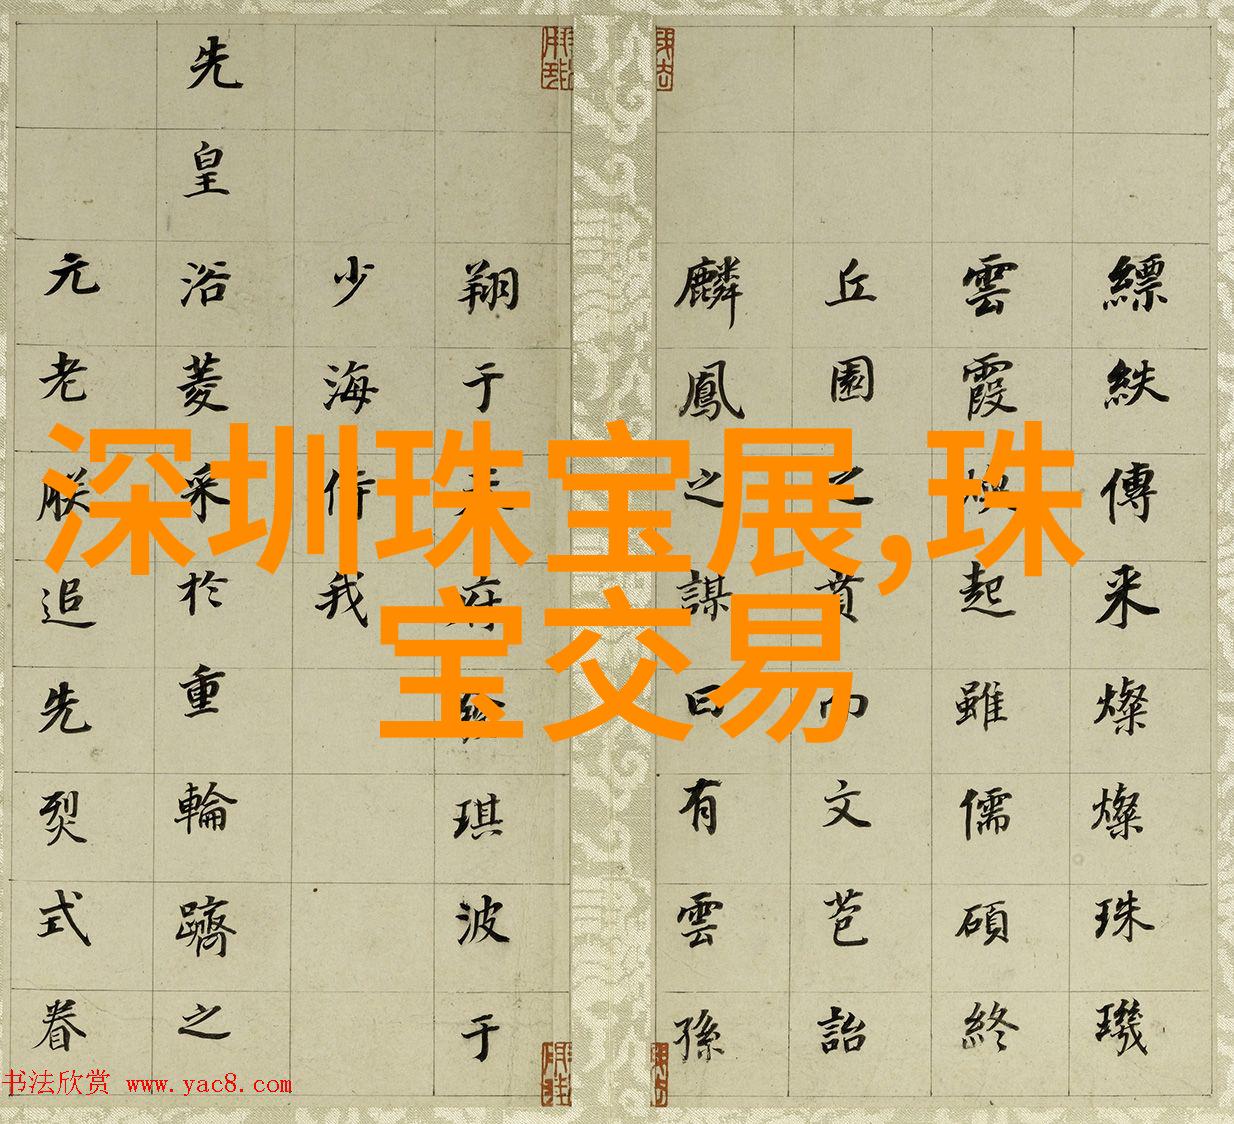 深圳珠宝展,珠
宝交易
縹帙傳来燦燦珠璣
雲霞 起雖儒碩終
丘園之賁而文苞詒
麟鳳之謀曰有雲孫
翔于天府 琪波于
少海侍我
先皇浴菱采於重輪躋之
元老朕追先烈式眷
书法欣赏 www.yac8.com